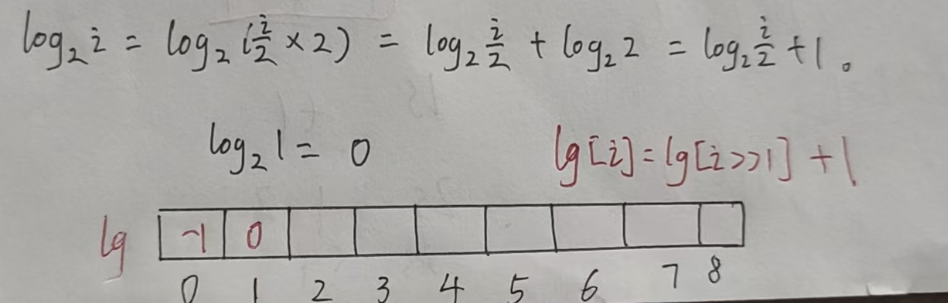 log₂i = log₂(i/2 × 2) = log₂ i/2 + log₂2 = log₂ i/2 + 1。
log₂1 = 0 lg[i] = lg[i>>1] + 1
lg -1 0
0 1 2 3 4 5 6 7 8